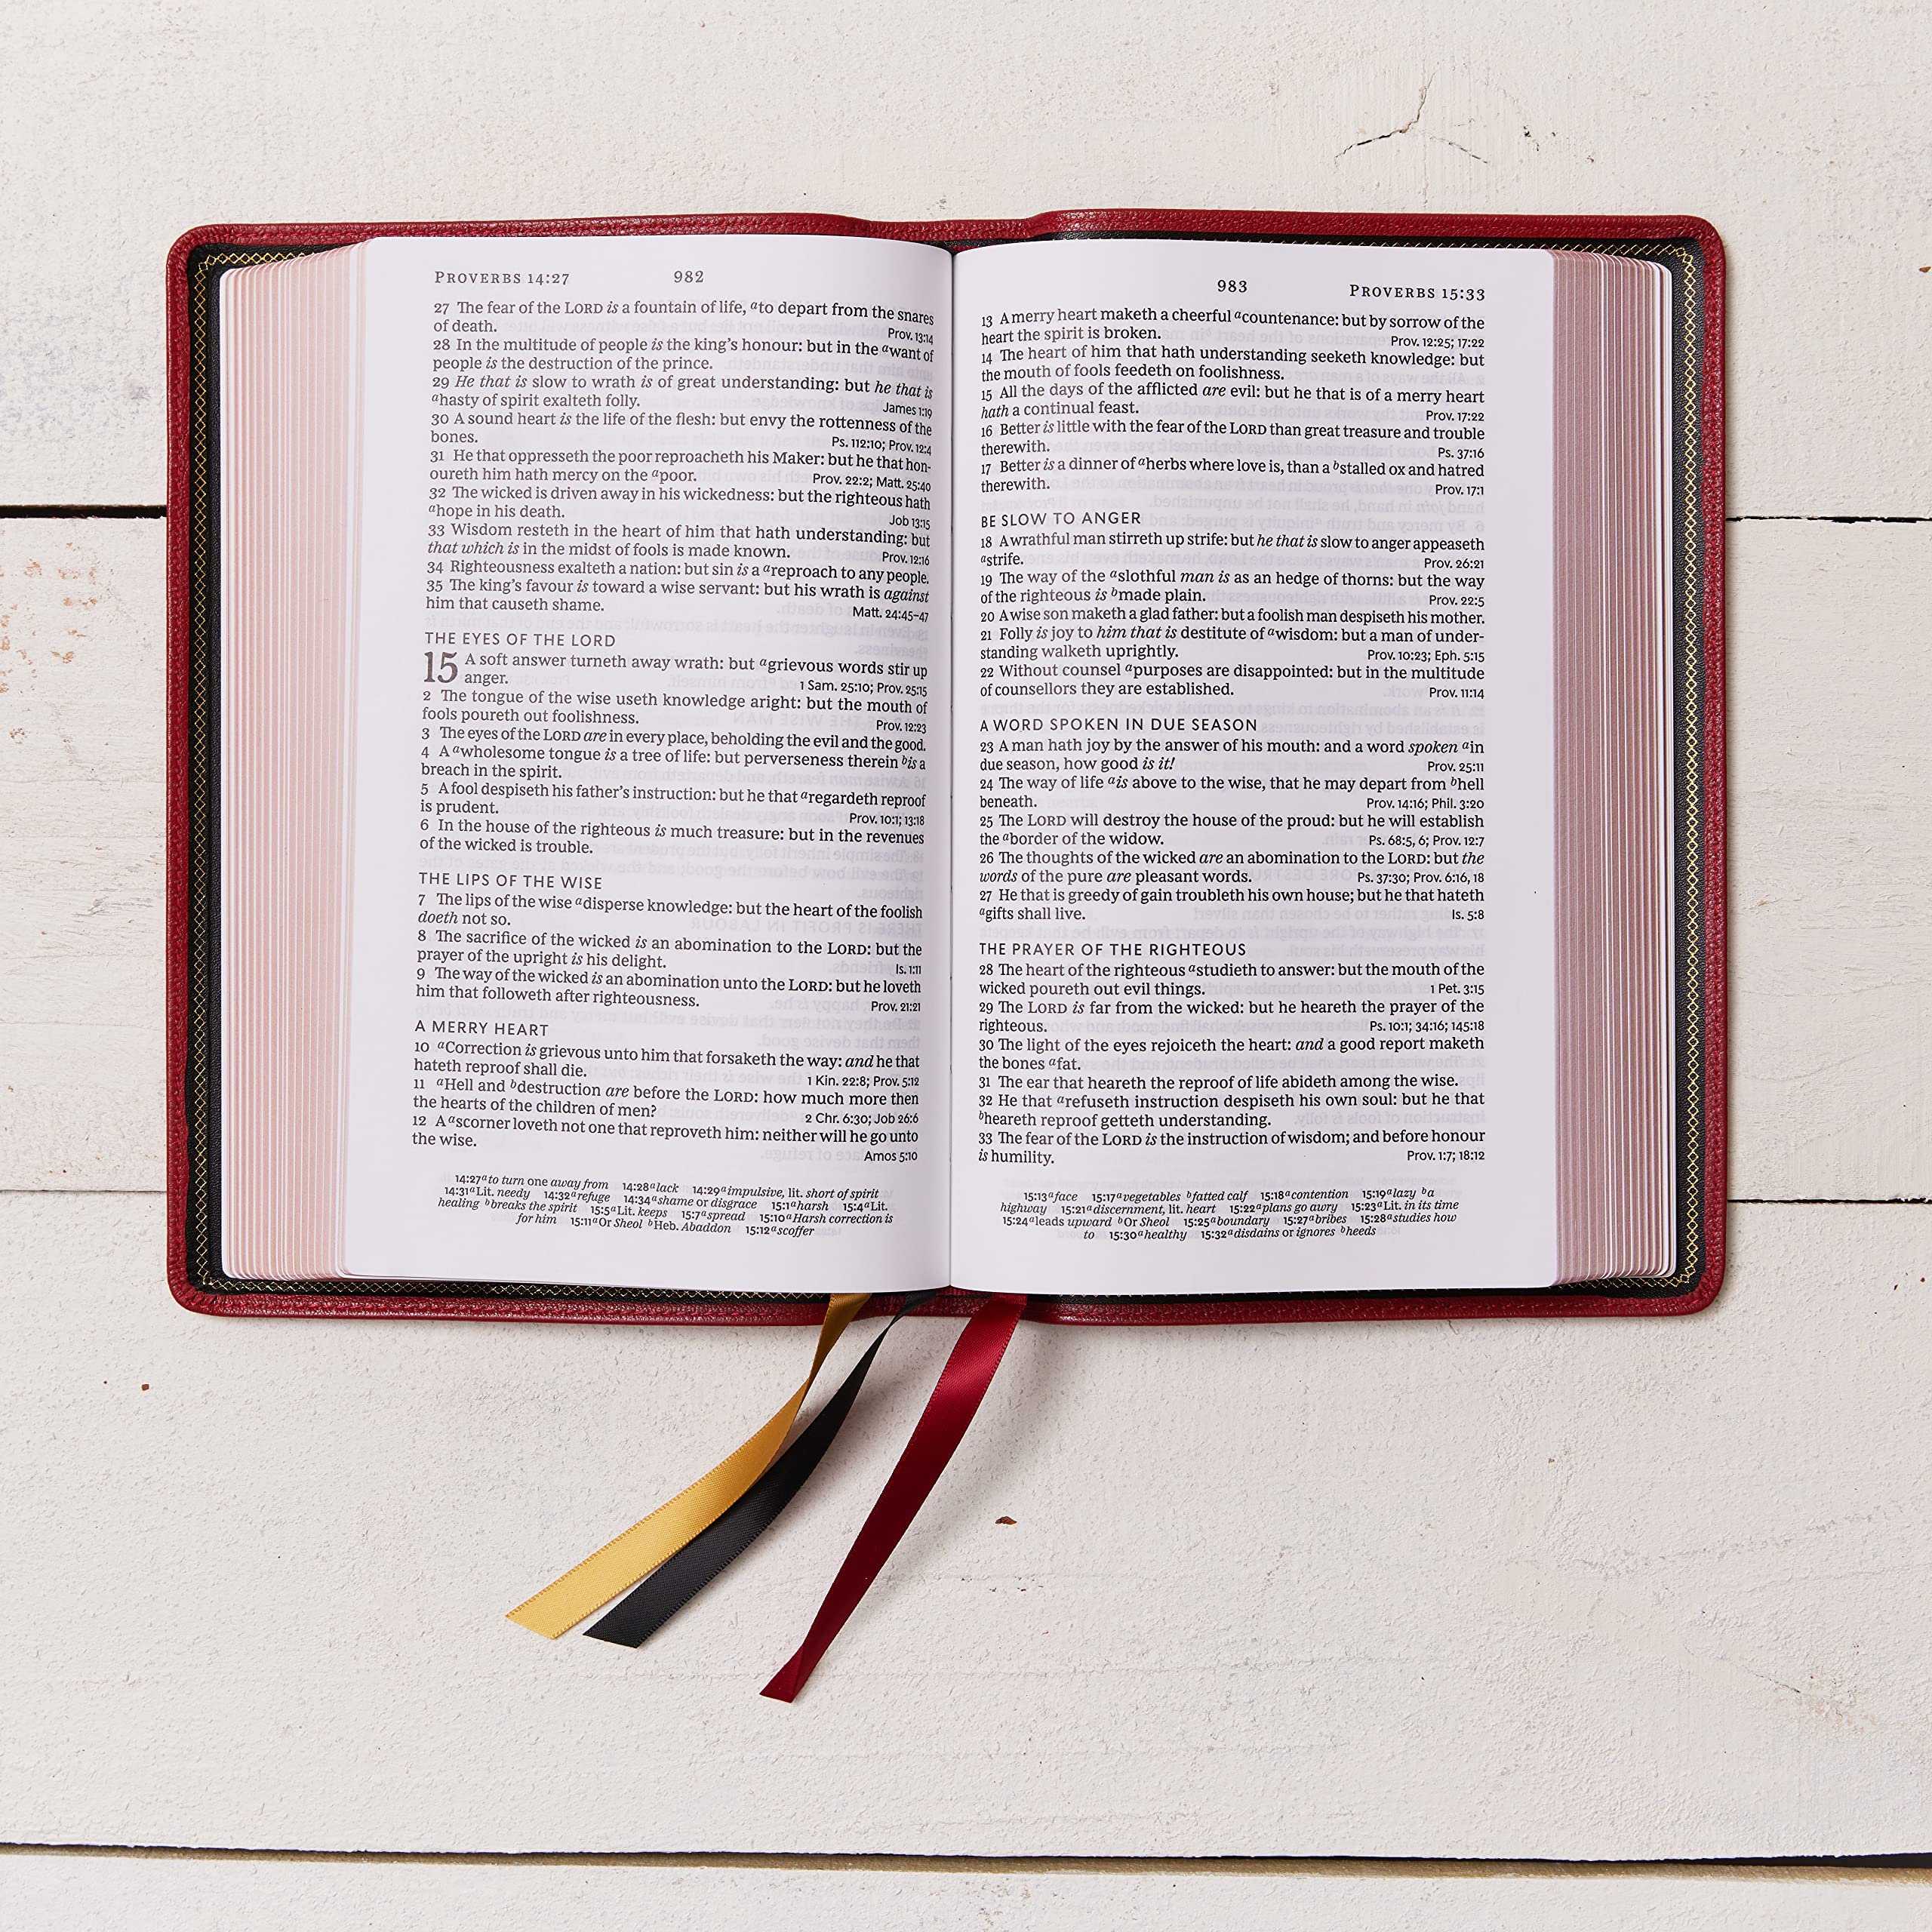 PROVERBS 14:27 982
27 The fear of the LORD is a fountain of life, ato depart from the snares
of death. Prov. 13:14
28 In the multitude of people is the king's honour: but in the awant of
people is the destruction of the prince.
29 He that is slow to wrath is of great understanding: but he that is
ahasty of spirit exalteth folly. James 1:19
30 A sound heart is the life of the flesh: but envy the rottenness of the
bones. Ps. 112:10; Prov. 12:4
31 He that oppresseth the poor reproacheth his Maker: but he that hon-
oureth him hath mercy on the apoor. Prov. 22:2; Matt. 25:40
32 The wicked is driven away in his wickedness: but the righteous hath
ahope in his death. Job 13:15
33 Wisdom resteth in the heart of him that hath understanding: but
that which is in the midst of fools is made known. Prov. 12:16
34 Righteousness exalteth a nation: but sin is a areproach to any people.
35 The king's favour is toward a wise servant: but his wrath is against
him that causeth shame. Matt. 24:45–47
THE EYES OF THE LORD
15 A soft answer turneth away wrath: but agrievous words stir up
anger. 1 Sam. 25:10; Prov. 25:15
2 The tongue of the wise useth knowledge aright: but the mouth of
fools poureth out foolishness. Prov. 12:23
3 The eyes of the LORD are in every place, beholding the evil and the good.
4 A awholesome tongue is a tree of life: but perverseness therein bis a
breach in the spirit.
5 A fool despiseth his father's instruction: but he that aregardeth reproof
is prudent. Prov. 10:1; 13:18
6 In the house of the righteous is much treasure: but in the revenues
of the wicked is trouble.
THE LIPS OF THE WISE
7 The lips of the wise adisperse knowledge: but the heart of the foolish
doeth not so.
8 The sacrifice of the wicked is an abomination to the LORD: but the
prayer of the upright is his delight. Is. 1:11
9 The way of the wicked is an abomination unto the LORD: but he loveth
him that followeth after righteousness. Prov. 21:21
A MERRY HEART
10 aCorrection is grievous unto him that forsaketh the way: and he that
hateth reproof shall die. 1 Kin. 22:8; Prov. 5:12
11 aHell and bdestruction are before the LORD: how much more then
the hearts of the children of men? 2 Chr. 6:30; Job 26:6
12 A ascorner loveth not one that reproveth him: neither will he go unto
the wise. Amos 5:10
14:27 a to turn one away from 14:28 a lack 14:29 a impulsive, lit. short of spirit
14:31 a Lit. needy 14:32 a refuge 14:34 a shame or disgrace 15:1 a harsh 15:4 a Lit.
healing b breaks the spirit 15:5 a Lit. keeps 15:7 a spread 15:10 a Harsh correction is
for him 15:11 a Or Sheol b Heb. Abaddon 15:12 a scoffer
983 PROVERBS 15:33
13 A merry heart maketh a cheerful acountenance: but by sorrow of the
heart the spirit is broken. Prov. 12:25; 17:22
14 The heart of him that hath understanding seeketh knowledge: but
the mouth of fools feedeth on foolishness.
15 All the days of the afflicted are evil: but he that is of a merry heart
hath a continual feast. Prov. 17:22
16 Better is little with the fear of the LORD than great treasure and trouble
therewith. Ps. 37:16
17 Better is a dinner of aherbs where love is, than a bstalled ox and hatred
therewith. Prov. 17:1
BE SLOW TO ANGER
18 A wrathful man stirreth up strife: but he that is slow to anger appeaseth
astrife. Prov. 26:21
19 The way of the aslothful man is as an hedge of thorns: but the way
of the righteous is bmade plain. Prov. 22:5
20 A wise son maketh a glad father: but a foolish man despiseth his mother.
21 Folly is joy to him that is destitute of awisdom: but a man of under-
standing walketh uprightly. Prov. 10:23; Eph. 5:15
22 Without counsel apurposes are disappointed: but in the multitude
of counsellors they are established. Prov. 11:14
A WORD SPOKEN IN DUE SEASON
23 A man hath joy by the answer of his mouth: and a word spoken ain
due season, how good is it! Prov. 25:11
24 The way of life ais above to the wise, that he may depart from bhell
beneath. Prov. 14:16; Phil. 3:20
25 The LORD will destroy the house of the proud: but he will establish
the aborder of the widow. Ps. 68:5, 6; Prov. 12:7
26 The thoughts of the wicked are an abomination to the LORD: but the
words of the pure are pleasant words. Ps. 37:30; Prov. 6:16, 18
27 He that is greedy of gain troubleth his own house; but he that hateth
agifts shall live. Is. 5:8
THE PRAYER OF THE RIGHTEOUS
28 The heart of the righteous astudieth to answer: but the mouth of the
wicked poureth out evil things. 1 Pet. 3:15
29 The LORD is far from the wicked: but he heareth the prayer of the
righteous. Ps. 10:1; 34:16; 145:18
30 The light of the eyes rejoiceth the heart: and a good report maketh
the bones afat.
31 The ear that heareth the reproof of life abideth among the wise.
32 He that arefuseth instruction despiseth his own soul: but he that
bheareth reproof getteth understanding.
33 The fear of the LORD is the instruction of wisdom; and before honour
is humility. Prov. 1:7; 18:12
15:13 a face 15:17 a vegetables b fatted calf 15:18 a contention 15:19 a lazy b a
highway 15:21 a discernment, lit. heart 15:22 a plans go awry 15:23 a Lit. in its time
15:24 a leads upward b Or Sheol 15:25 a boundary 15:27 a bribes 15:28 a studies how
to 15:30 a healthy 15:32 a disdains or ignores b heeds